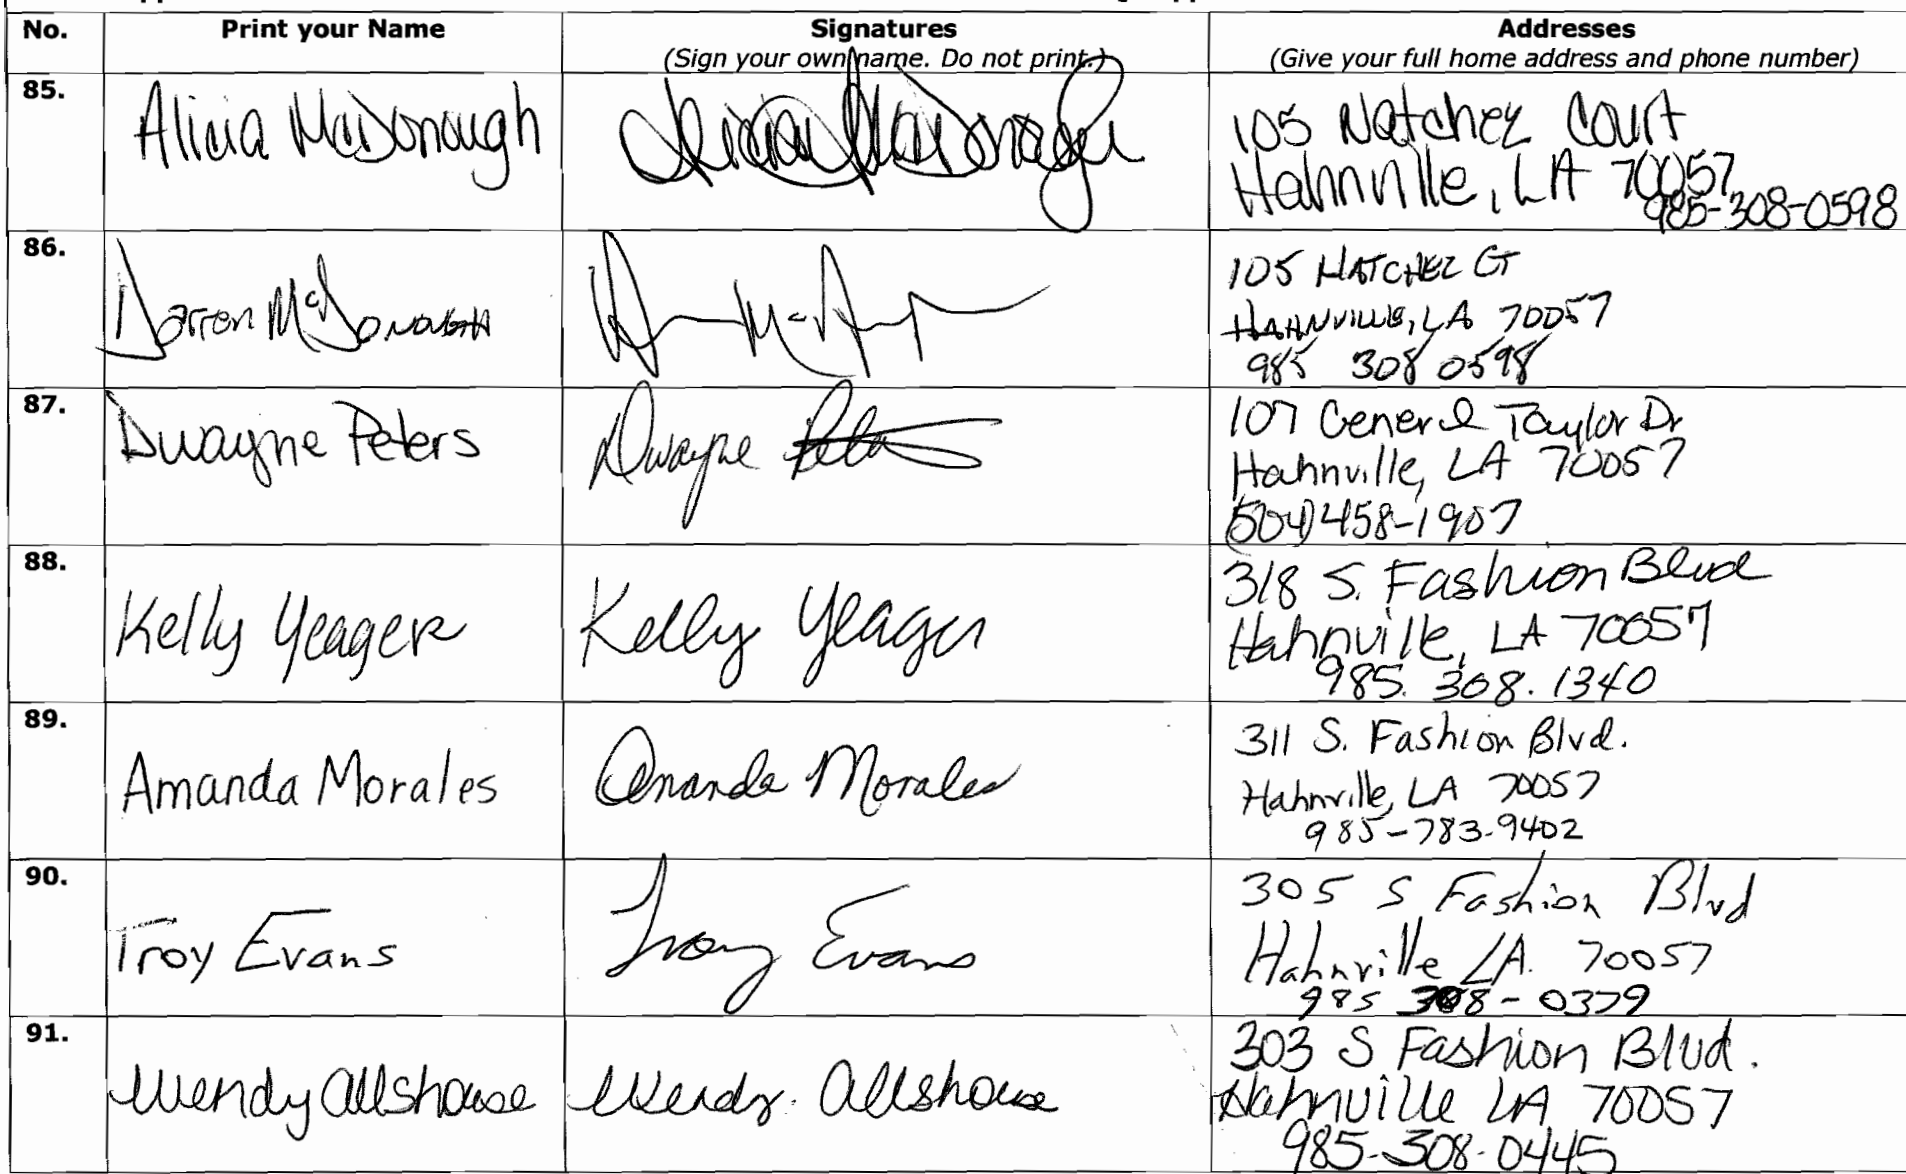 No. Print your Name Signatures Addresses
(Sign your own name. Do not print.) (Give your full home address and phone number)
85. Alicia McDonough Alicia McDonough 105 Natchez Court
Hahnville, LA 70057
985-308-0598
86. Darren McDonough 105 NATCHEZ CT
HAHNVILLE, LA 70057
985 308 0598
87. Dwayne Peters Dwayne Peters 107 General Taylor Dr
Hahnville, LA 70057
(504) 458-1907
88. Kelly Yeager Kelly Yeager 318 S. Fashion Blvd
Hahnville, LA 70057
985. 308. 1340
89. Amanda Morales Amanda Morales 311 S. Fashion Blvd.
Hahnville, LA 70057
985-783-9402
90. Troy Evans Troy Evans 305 S Fashion Blvd
Hahnville LA. 70057
985 308-0379
91. Wendy Allshouse Wendy Allshouse 303 S Fashion Blvd.
Hahnville LA 70057
985-308-0445